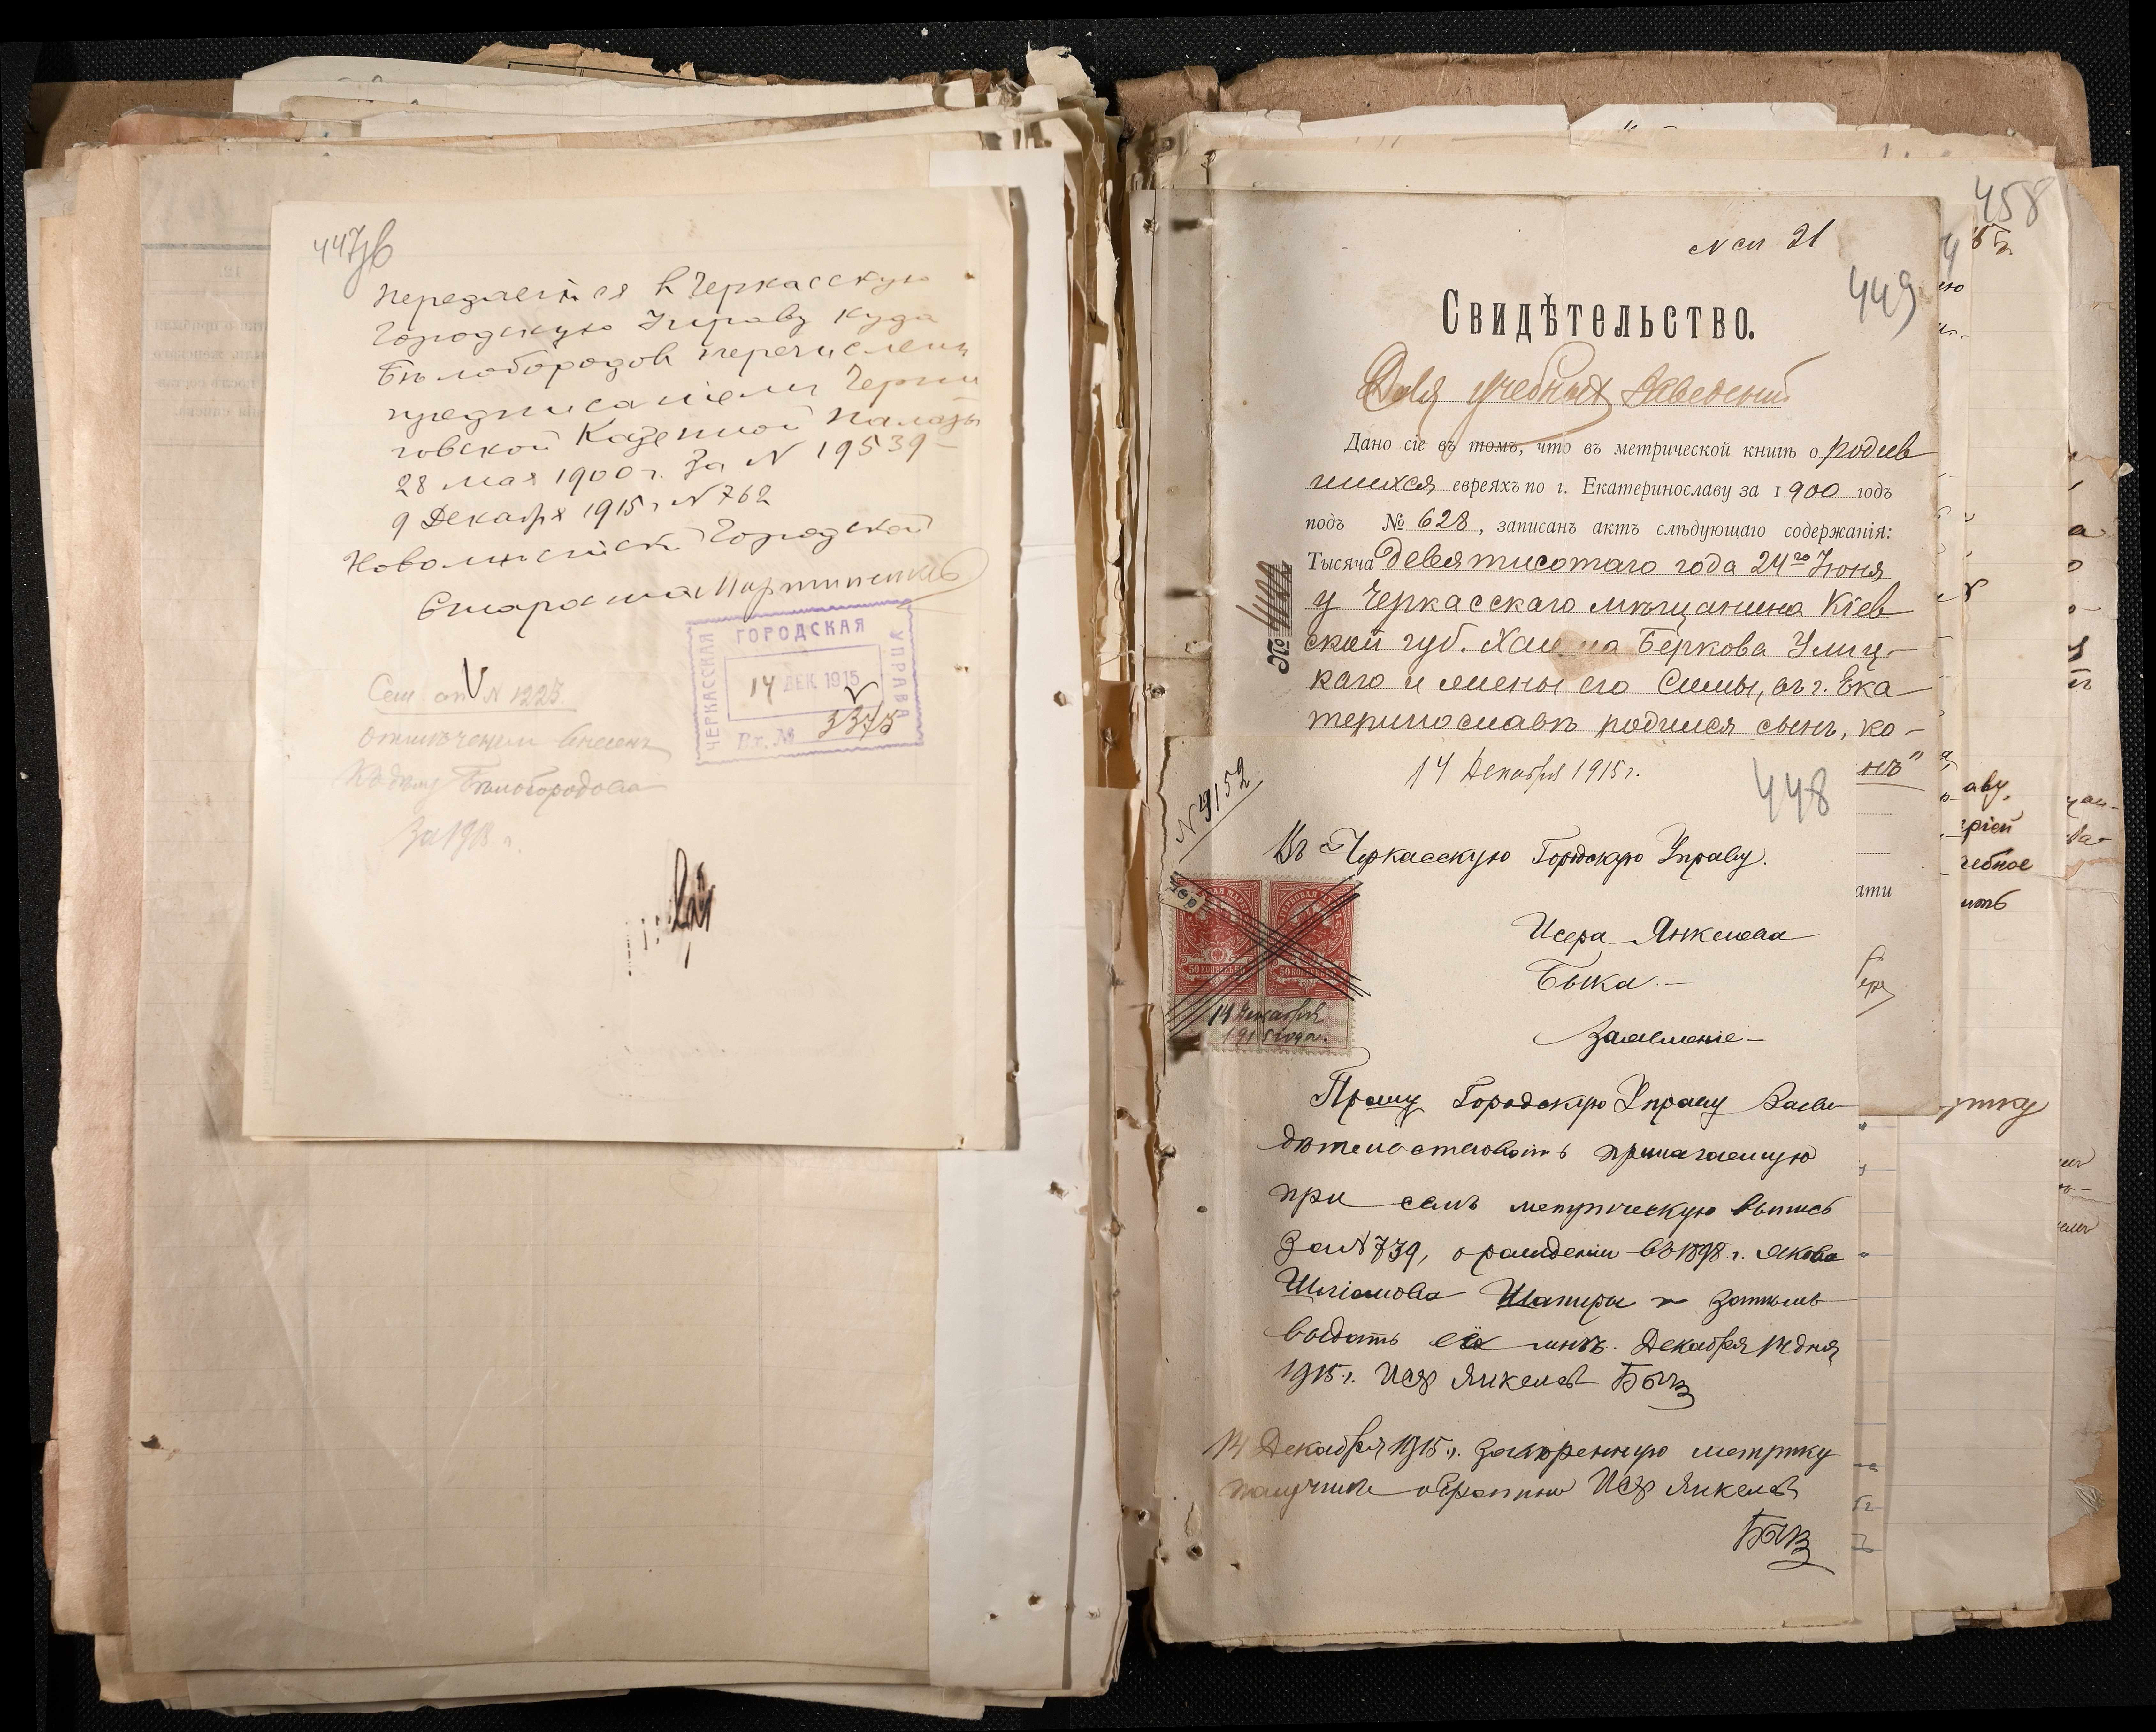 447об
передается в Черкасскую
Городскую Управу куда
Бѣлобородов перечислень
предписанiем Черни
говской Казенной палаты
28 мая 1900 г. за N 19539 -
9 Декабря 1915 г. N 762
Городской
Староста
ЧЕРКАССКАЯ ГОРОДСКАЯ УПРАВА
14 ДЕК. 1915
Вх. №
3375
N 1223.
Бѣлобородова
458
21
449
Свидѣтельство.
Для учебныхъ заведенiй
Дано сіе въ томъ, что въ метрической книгѣ о родив
шихся евреяхъ по г. Екатеринославу за 1900 годъ
подъ № 628, записанъ актъ слѣдующаго содержанія:
Тысяча девятисотаго года 24го Іюня
у Черкасскаго мѣщанина Кіев
ской губ. Хаима Беркова Улиц-
каго и жены его Симы, въ г. Ека-
теринославѣ родился сынъ, ко-
№ 4122
14 Декабря 1915 г.
448
N 9152
Въ Черкасскую Городскую Управу.
Исера Янкелева
Быка. -
Заявленіе -
50 КОПѢЕКЪ 50
50 КОПѢЕКЪ 50
14 Декабря
1915 года.
Прошу Городскую Управу Засви
дѣтельствовать прилагаемую
при семъ метрическую выпись
за N 739, о рожденіи въ 1898 г. Якова
Шліомова Шапиры и затѣмъ
выдать её мнѣ. Декабря 14 дня
1915 г. Исер Янкелев Бык
14 Декабря 1915 г. заверенную метрику
получилъ обратно Исер Янкелев
Бык